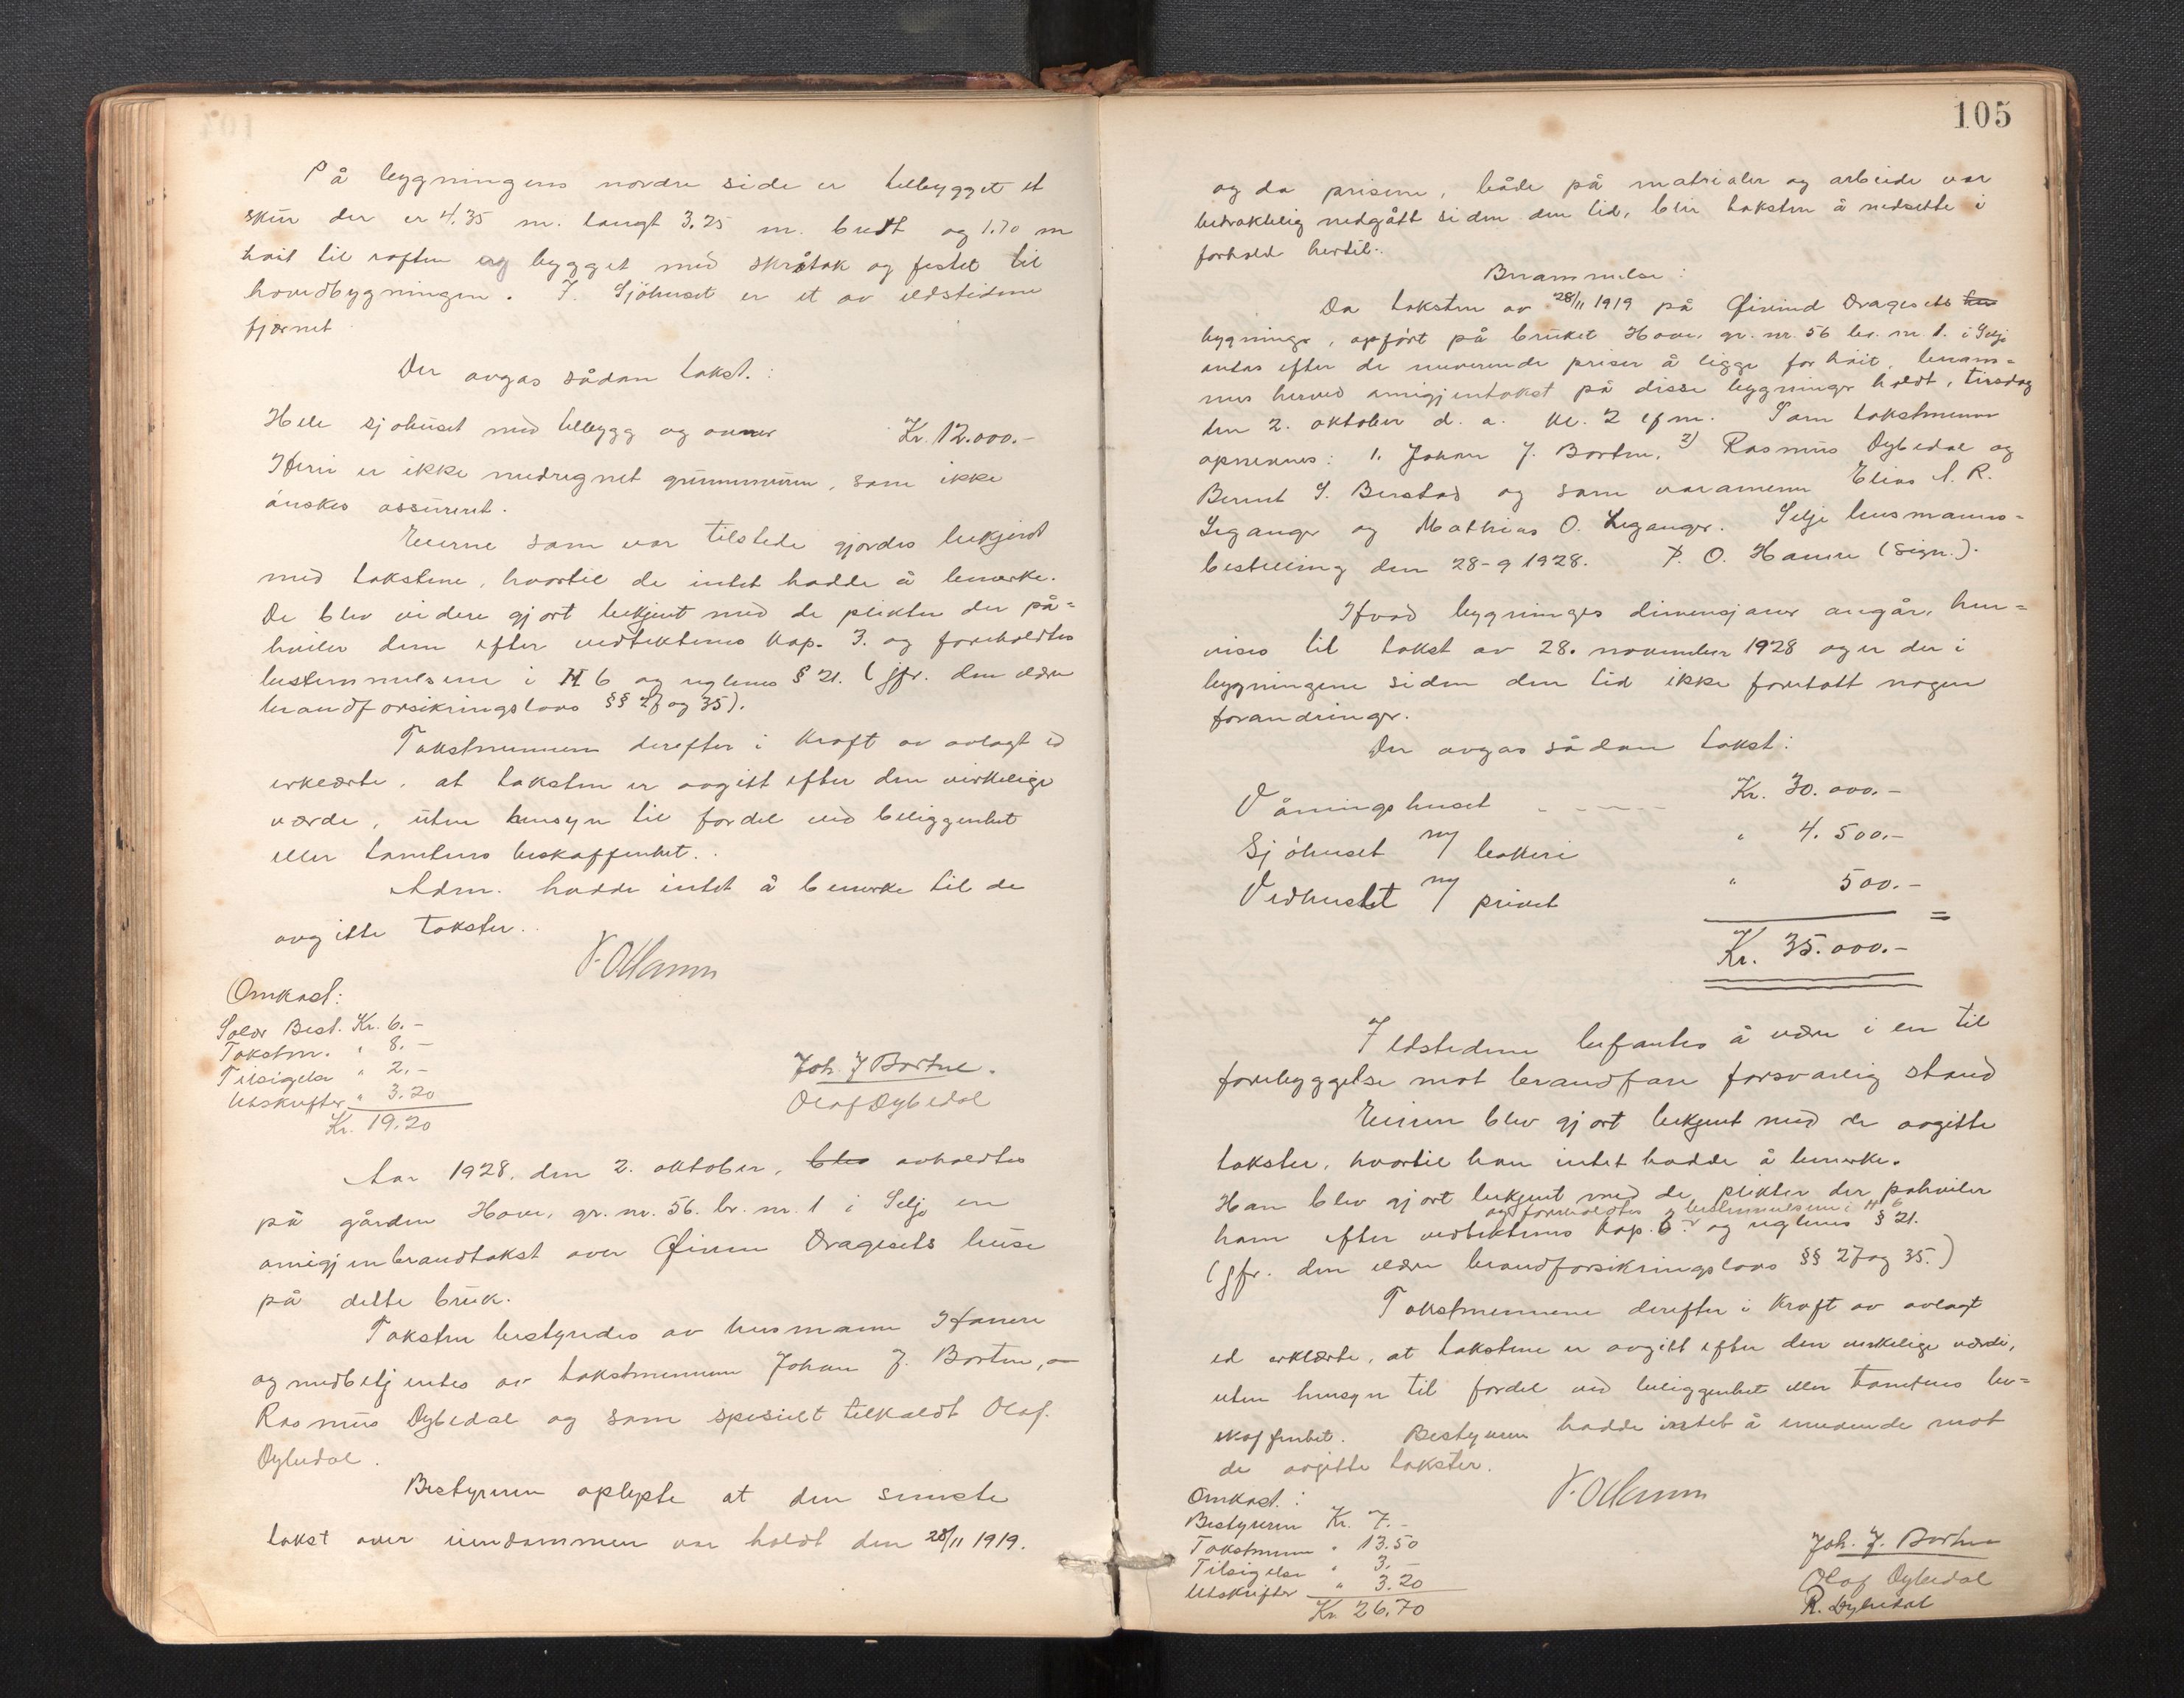 På bygningens nordre side er tilbygget et
skur der er 4.35 m. langt 3.25 m. bredt og 1.70 m
høit til raften og bygget med skråtak og festet til
hovedbygningen. I Sjøhuset er et av ildstedene
fjernet
Der avgas sådan takst.:
Hele sjøhuset med tilbygg og ovner Kr. 12.000.-
Heri er ikke medregnet grunnmuren, som ikke
ønskes assureret.
Eierne som var tilstede gjordes bekjent
med takstene, hvortil de intet hadde å bemerke.
De blev videre gjort bekjent med de plikter der på=
hviler dem efter vedtektenes kap. 3. og foreholdtes
bestemmelsene i H 6 og reglenes § 21. (jfr. den eldre
brandforsikringslovs §§ 27 og 35).
Takstmennene derefter i kraft av avlagt ed
erklærte, at taksten er avgitt efter den virkelige
værde, uten hensyn til fordel ved beliggenhet
eller tomtens beskaffenhet.
Adm. hadde intet å bemerke til de
avgitte takster.
P. O. Hamre
Omkost:
Solær Best. Kr. 6.-
Takstm. " 8.-
Tilsigelse " 2.-
Utskrifter " 3.20
Kr. 19.20
Joh. J Bortne.
Olaf Dybedal
Aar 1928. den 2. oktober, blev avholdtes
på gården Hove, gr. nr. 56. br. nr. 1 i Selje en
omigjenbrandtakst over Øivin Dragesets huse
på dette bruk.
Taksten bestyredes av lensmann Hamre
og medbetjentes av takstmennene Johan J. Bortne, o
Rasmus Dybedal og som spesielt tilkaldt Olaf.
Dybedal.
Bestyreren oplyste at den seneste
takst over eiendommen var holdt den 28/11 1919.
105
og da prisene, både på matrialer og arbeide var
betraktelig nedgått siden den tid, blir taksten å nedsette i
forhold hertil.
Berammelse:
Da taksten av 28/11 1919 på Øivind Dragesets hus
bygninge, opført på bruket Hove, gr. nr. 56 br. nr 1. i Selje
antas efter de nuverende priser å ligge for høit, beram=
mes herved omigjentakst på disse bygninger holdt, tirsdag
den 2. oktober d. a. kl. 2 efm. Som takstmenn
opnevnes: 1. Johan J. Bortne, 2) Rasmus Dybedal og
Bernt S. Berstad og som varamenn Elias A. R.
Leganger og Mathias O. Leganger. Selje lensmanns=
bestilling den 28-9 1928. P. O. Hamre (sign.).
Hvad bygninges dimensjoner angår, hen=
vises til takst av 28. november 1928 og er der i
bygningene siden den tid ikke foretatt nogen
forandringer.
Der avgas sådan takst:
Våningshuset - - - - Kr. 30.000.-
Sjøhuset m/ bakeri " 4.500.-
Vedhuset m/ privet " 500.-
Kr. 35.000.-
Ildstedene befantes å være i en til
forebyggelse mot brandfare forsvarlig stand
Eieren blev gjort bekjent med de avgitte
takster, hvortil han intet hadde å bemerke.
Han blev gjort bekjent med de plikter der påhviler
og foreholdtes bestemmelsene i H 6
ham efter vedtektenes kap. og reglenes § 21.
(jfr. den eldre brandforsikringslovs §§ 27 og 35.)
Takstmennene derefter i kraft av avlagt
ed erklærte, at takstene er avgitt efter den verkelige værdi,
uten hensyn til fordel ved beliggenhet eller tomtens be=
skaffenhet. Bestyreren hadde intet å invende mot
de avgitte takster.
P. O. Hamre
Omkost.:
Bestyreren Kr. 7.-
Takstmenn " 13.50
Tilsigelse " 3.-
Utskrifter " 3.20
Kr 26.70
Joh. J. Bortne
Olaf Dybedal
R. Dybedal